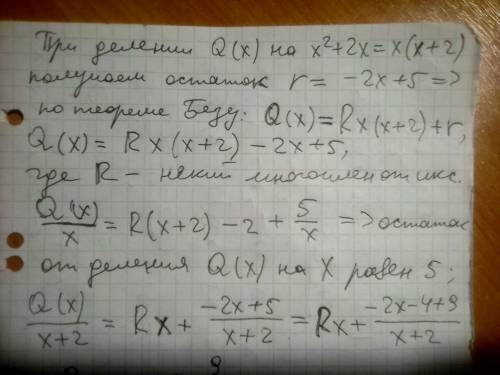 При делении Q(x) на x²+2x=x(x+2)
получаем остаток r= -2x+5 =>
по теореме Безу: Q(x)=Rx(x+2)+r,
Q(x)= Rx(x+2)-2x+5,
где R - некий многочлен от икс.
Q(x)/x = R(x+2)-2+5/x => остаток
от деления Q(x) на X равен 5;
Q(x)/(x+2) = Rx+(-2x+5)/(x+2) = Rx+(-2x-4+9)/(x+2)